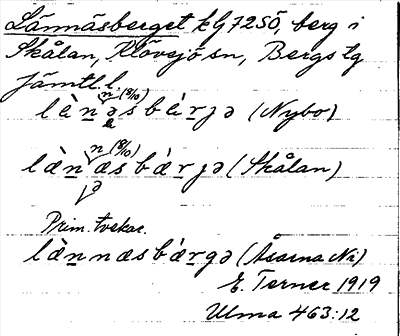 Lännäsberget kG7 2SÖ, berg i
Skålan, Klövsjö sn, Bergs tg
Jämtl. l.
n (8/10)
lὰnəsbὰrjə (Nybo)
æ
n (8/10)
lὰ̈næsbæ̀rjə (Skålan)
ə
Prim. tvekar.
læ̀nnæsbæ̀rgə (Åsarna Ni)
E. Terner 1919
Ulma 463:12